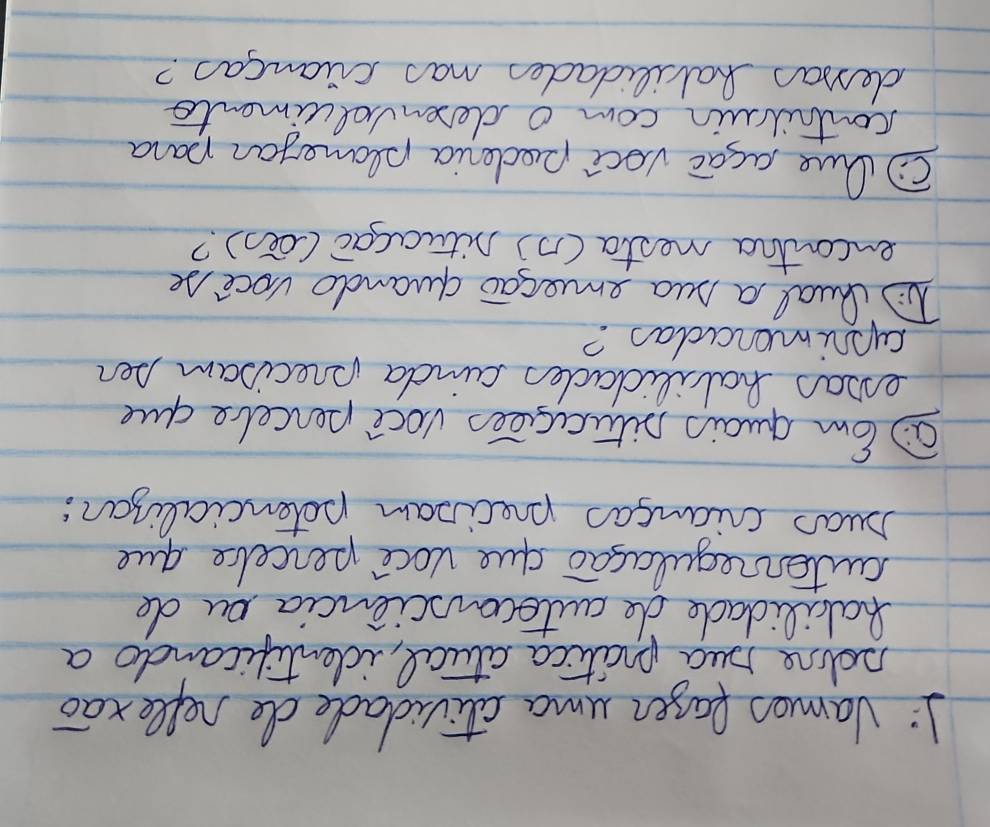 1: Vamos fazer uma atividade de reflexaõ
sobre sua prática atual, identificando a
habilidade de autoconsciência ou de
autorregulaçaõ que você percebe que
suas crianças precisam potencializar:
a:) Em quais situações você percebe que
essas habilidades ainda precisam ser
aprimoradas?
b:) Qual a sua emoçaõ quando você se
encontra nesta(s) situaçaõ(ões)?
c:) Que açaõ você poderia planejar para
contribuir com o desenvolvimento
dessas habilidades nas crianças?